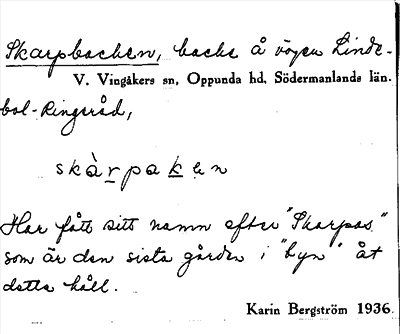 Skarpbacken, backe å vägen Linde-
V. Vingåkers sn, Oppunda hd, Södermanlands län.
bol-Ringsråd,
skàrpaken
Har fått sitt namn efter "Skarpas"
som är den sista gården i "byn" åt
detta håll.
Karin Bergström 1936.